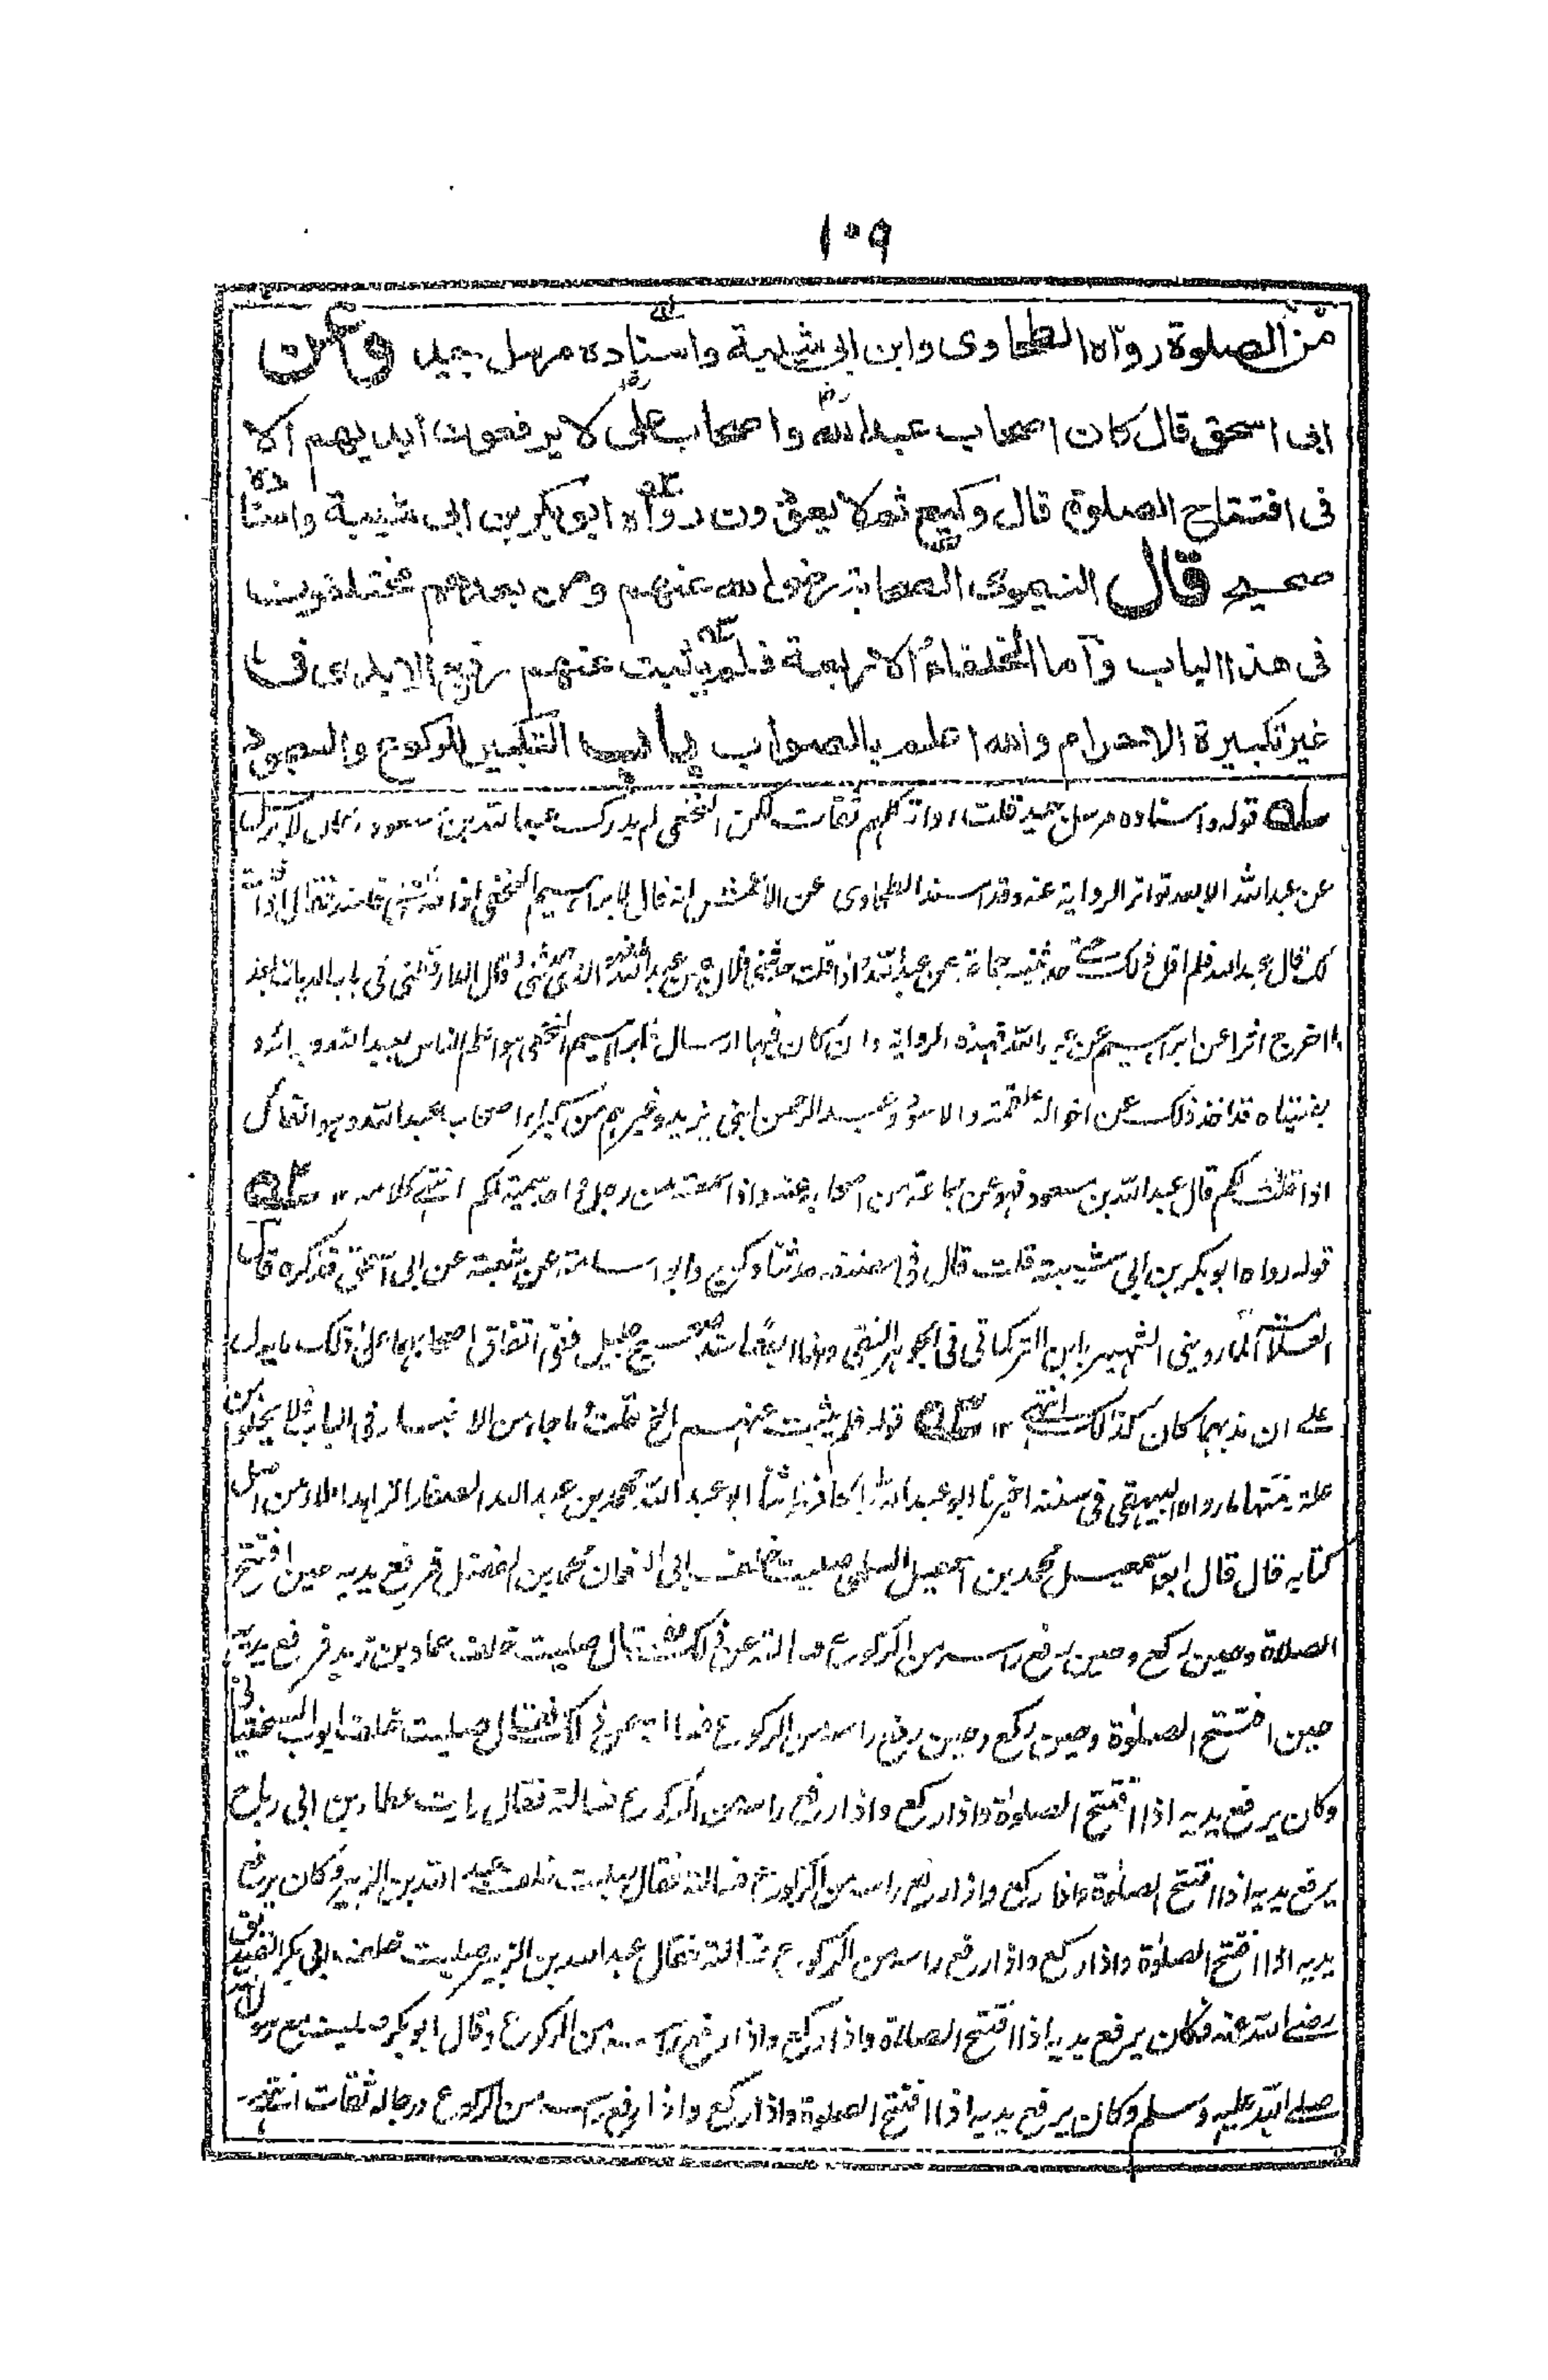 ١٠٩
من الصلوة رواه الطحاوى وابن ابى شيبة واسناده مرسل جيد وعن
ابى اسحق قال كان اصحاب عبد الله واصحاب على لا يرفعون ايديهم الا
فى افتتاح الصلوة قال وكيع ثم لا يعودون رواه ابو بكر بن ابى شيبة واسناده
صحيح قال النيموى الصحابة رضى الله عنهم ومن بعدهم مختلفون
فى هذا الباب واما الخلفاء الاربعة فلم يثبت عنهم رفع الايدى فى
غير تكبيرة الاحرام والله اعلم بالصواب باب التكبير للركوع والسجود
له قوله واسناده مرسل جيد قلت رواته كلهم ثقات لكن النخعى لم يدرك عبد الله بن مسعود وكان لا يرسل
عن عبد الله الا بعد تواتر الرواية عنه وقد اسند الطحاوى عن الاعمش انه قال لابراهيم النخعى اذا حدثتنى فاسند فقال اذا
لك قال عبد الله فلم اقل ذلك حتى حدثنيه جماعة عن عبد الله واذا قلت حدثنى فلان عن عبد الله فهو الذى حدثنى وقال الدارقطنى فى باب الديات بعد
ما اخرج اثرا عن ابراهيم عن عبد الله فهذه الرواية وان كان فيها ارسال فابراهيم النخعى هو اعلم الناس بعبد الله وبرائه و
بفتياه قد اخذ ذلك عن اخواله علقمة والاسود وعبد الرحمن ابنى يزيد وغيرهم من كبراء اصحاب عبد الله وهو القائل
اذا قلت لكم قال عبد الله بن مسعود فهو عن جماعة من اصحابه عنه واذا سمعته من رجل واحد سميته لكم انتهى كلامه ١٢ له
قوله رواه ابو بكر بن ابى شيبة قلت قال فى مصنفه حدثنا وكيع وابو اسامة عن شعبة عن ابى اسحق فذكره قال
العلامة الماردينى الشهير بابن التركمانى فى الجوهر النقى وهذا ايضا سند صحيح جليل ففى اتفاق اصحابهما على ذلك ما يدل
على ان مذهبهما كان كذلك انتهى ١٢ له قوله فلم يثبت عنهم الخ قلت وما جاء من الاخبار فى الباب فلا يخلو من
علة فمنها ما رواه البيهقى فى سننه اخبرنا ابو عبد الله الحافظ ثنا ابو عبد الله محمد بن عبد الله الصفار الزاهد املاء من اصل
كتابه قال قال ابو اسمعيل محمد بن اسمعيل السلمى صليت خلف ابى النعمان محمد بن الفضل فرفع يديه حين افتتح
الصلاة وحين ركع وحين رفع راسه من الركوع فسالته عن ذلك فقال صليت خلف حماد بن زيد فرفع يديه
حين افتتح الصلوة وحين ركع وحين رفع راسه من الركوع فسالته عن ذلك فقال صليت خلف ايوب السختيانى
وكان يرفع يديه اذا افتتح الصلوة واذا ركع واذا رفع راسه من الركوع فسالته فقال رايت عطاء بن ابى رباح
يرفع يديه اذا افتتح الصلوة واذا ركع واذا رفع راسه من الركوع فسالته فقال صليت خلف عبد الله بن الزبير وكان يرفع
يديه اذا افتتح الصلوة واذا ركع واذا رفع راسه من الركوع فسالته فقال عبد الله بن الزبير صليت خلف ابى بكر الصديق
رضى الله عنه فكان يرفع يديه اذا افتتح الصلاة واذا ركع واذا رفع راسه من الركوع وقال ابو بكر صليت مع رسول الله
صلى الله عليه وسلم وكان يرفع يديه اذا افتتح الصلوة واذا ركع واذا رفع راسه من الركوع ورجاله ثقات انتهى